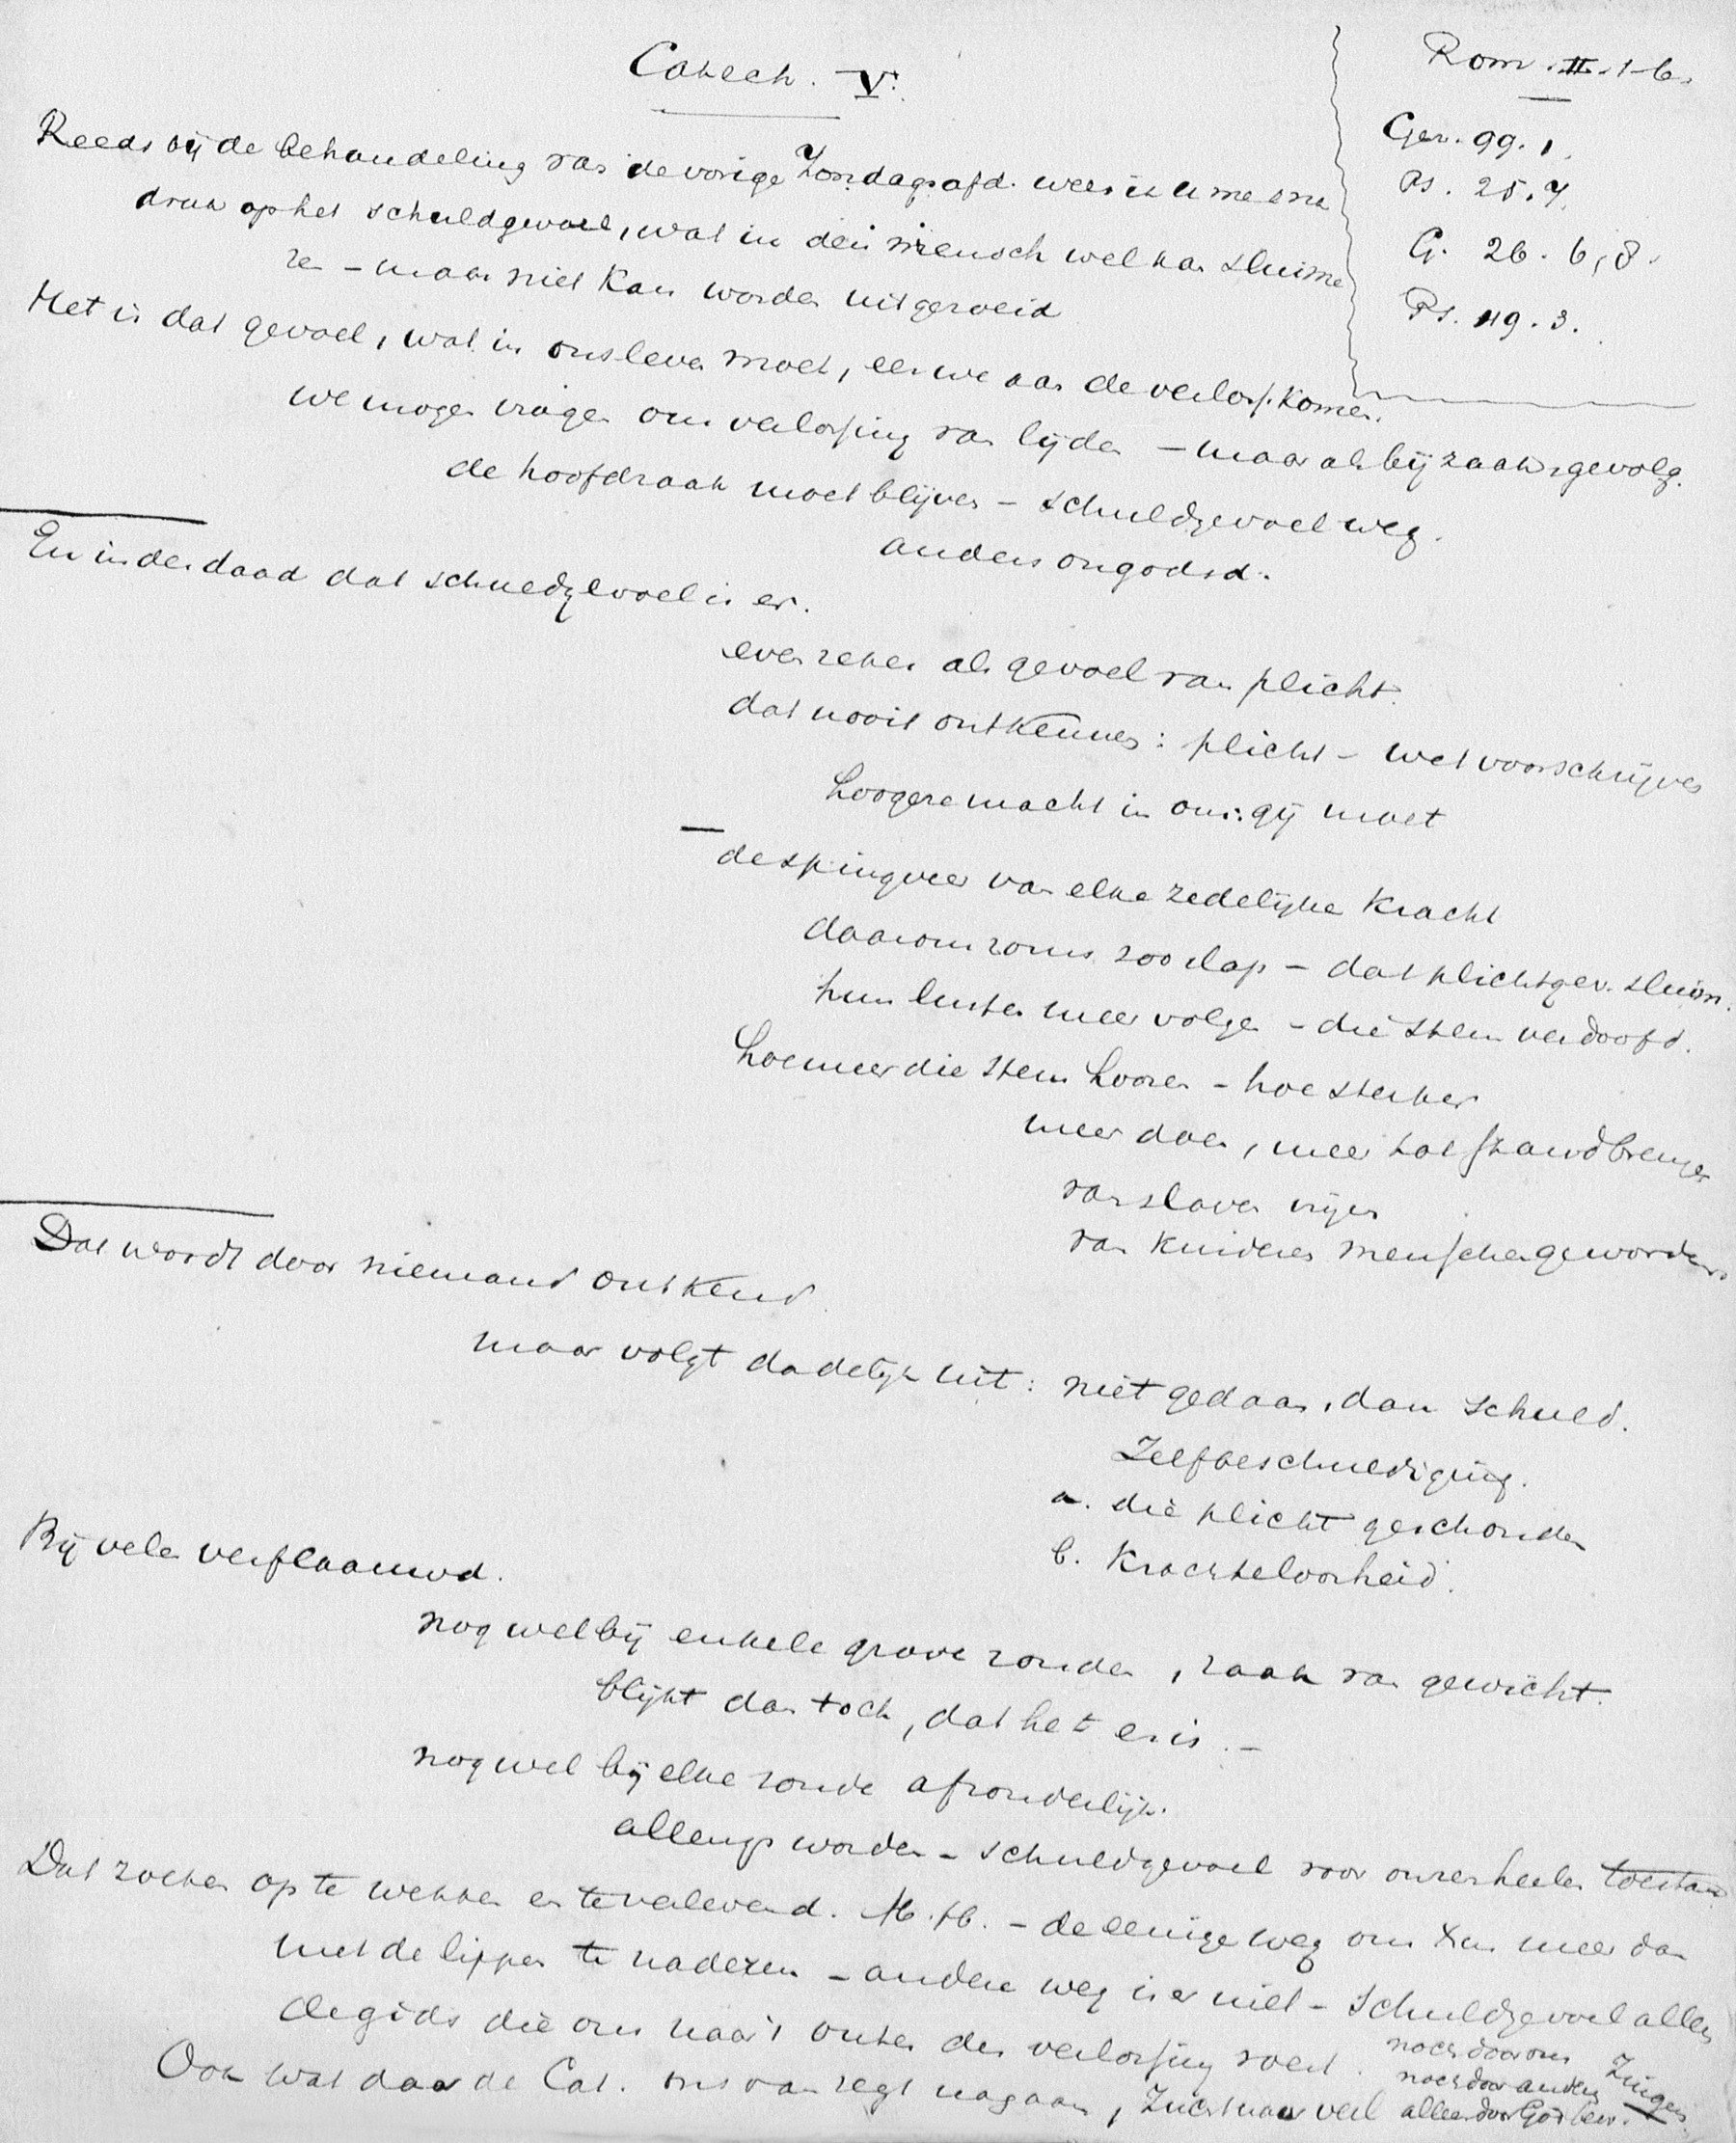 Catech. V.
Rom. II. 1-6.
Gez. 99. 1.
Ps. 25. 7.
G. 26. 6, 8.
Ps. 119. 3.
Reeds bij de behandeling van de vorige Zondagsafd. wees ik u me
druk op het schuldgevoel, wat in den mensch wel kan sluime
re - maar niet kan worden uitgeroeid
Het is dat gevoel, wat in ons leven moet, eer we aan de verloss. komen.
we mogen vragen om verlossing van lijden - maar als bijzaak, gevolg.
de hoofdzaak moet blijven - schuldgevoel weg.
anders ongodsd.
En inderdaad dat schuldgevoel is er.
even zeker als gevoel van plicht.
dat nooit ontkennen: plicht - wet voorschrijven
hoogere macht in ons: gij moet
de springveer van elke zedelijke kracht
daarom soms zoo slap - dat plichtgev. sluim.
hun lusten meer volgen - die stem verdoofd.
hoe meer die stem hooren - hoe sterker
meer doen, meer tot stand brengen
van slaven vrijen
van kinderen menschen geworden
Dat wordt door niemand ontkend
maar volgt dadelijk uit: niet gedaan, dan schuld.
Zelfbeschuldiging.
a. die plicht geschonden
b. Krachteloosheid.
Bij velen verflaauwd.
nog wel bij enkele grove zonden, zaak van gewicht.
blijkt dan toch, dat het er is. -
nog wel bij elke zonde afzonderlijk.
allengs worden - schuldgevoel voor onzen heelen toestand
Dat zoeken op te wekken en te verlevend. M. H. - de eenige weg om Xus meer dan
met de lippen te naderen - andere weg is er niet - Schuldgevoel alleen
de gids die ons naar 't outer der verlossing voert.
Ook wat daar de Cat. ons van zegt nagaan,
noch door ons
noch door anderen
alleen door God bew.
Zingen